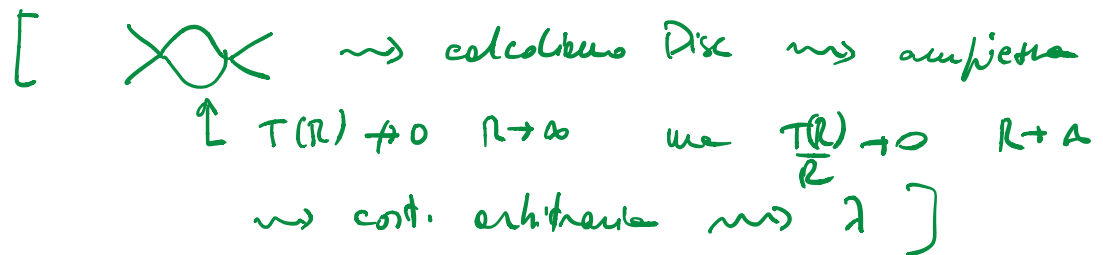 [ ⇝ calcoliamo Disc ⇝ ampiezza
↑ T(R) ↛ 0 R → ∞ ma T(R)/R → 0 R → ∞
⇝ cost. arbitraria ⇝ λ ]